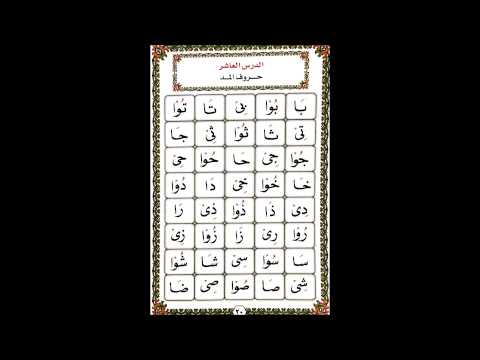 الدرس العاشر
حروف المد
بَا بُوْا بِيْ تَا تُوْا
تِيْ ثَا ثُوْا ثِيْ جَا
جُوْا جِيْ حَا حُوْا حِيْ
خَا خُوْا خِيْ دَا دُوْا
دِيْ ذَا ذُوْا ذِيْ رَا
رُوْا رِيْ زَا زُوْا زِيْ
سَا سُوْا سِيْ شَا شُوْا
شِيْ صَا صُوْا صِيْ ضَا
٢٠